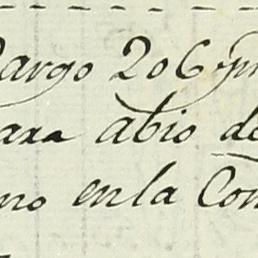 Cargo 206 p
para abio de
no en la Con